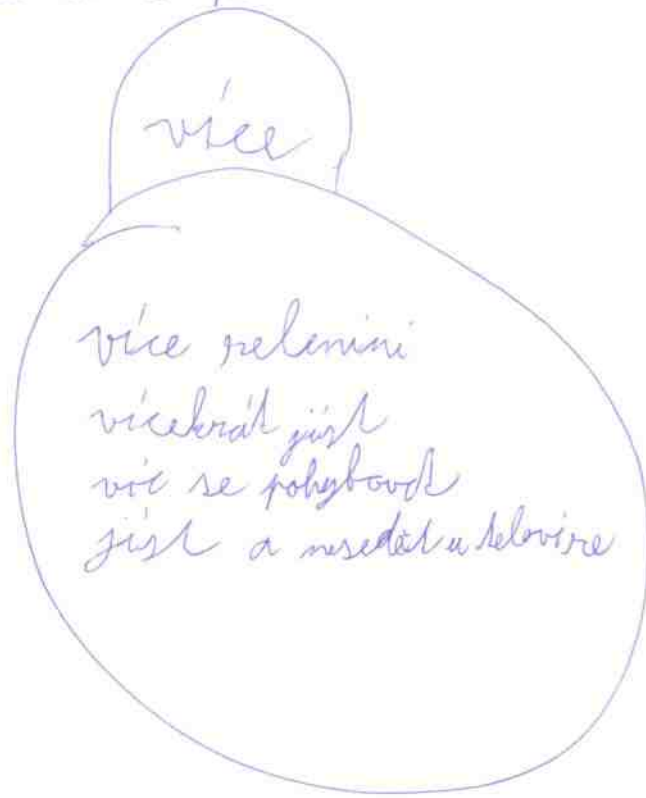 více
více zelenini
vícekrát jíst
víc se pohybovat
jíst a nesedět u televize